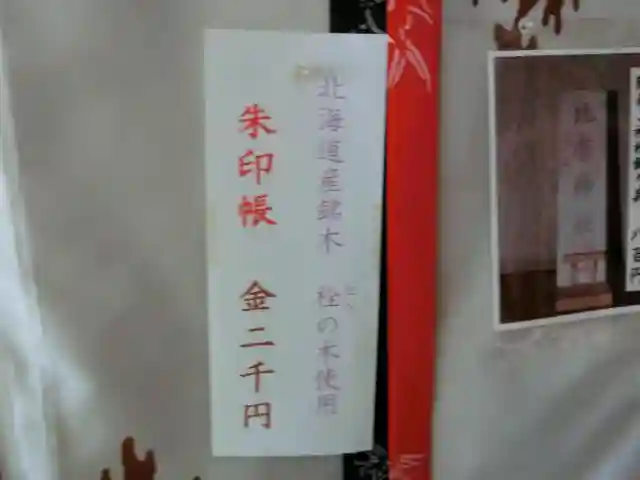 北海道産銘木 栓の木使用
朱印帳 金二千円
八百円